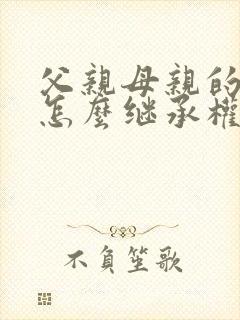 父親母親的
怎麼继承權
不負笙歌